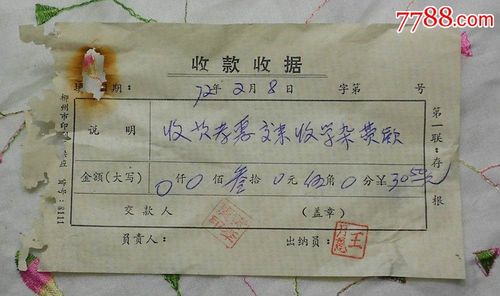 7788.com
收款收据
期: 72年2月8日 字第 号
说明 收 交来收学杂费款
金额(大写) 0仟0佰叁拾0元伍角0分¥30.50元
交款人 (盖章)
员责人: 出纳员: 王
第一联:存根
柳州市印
8111